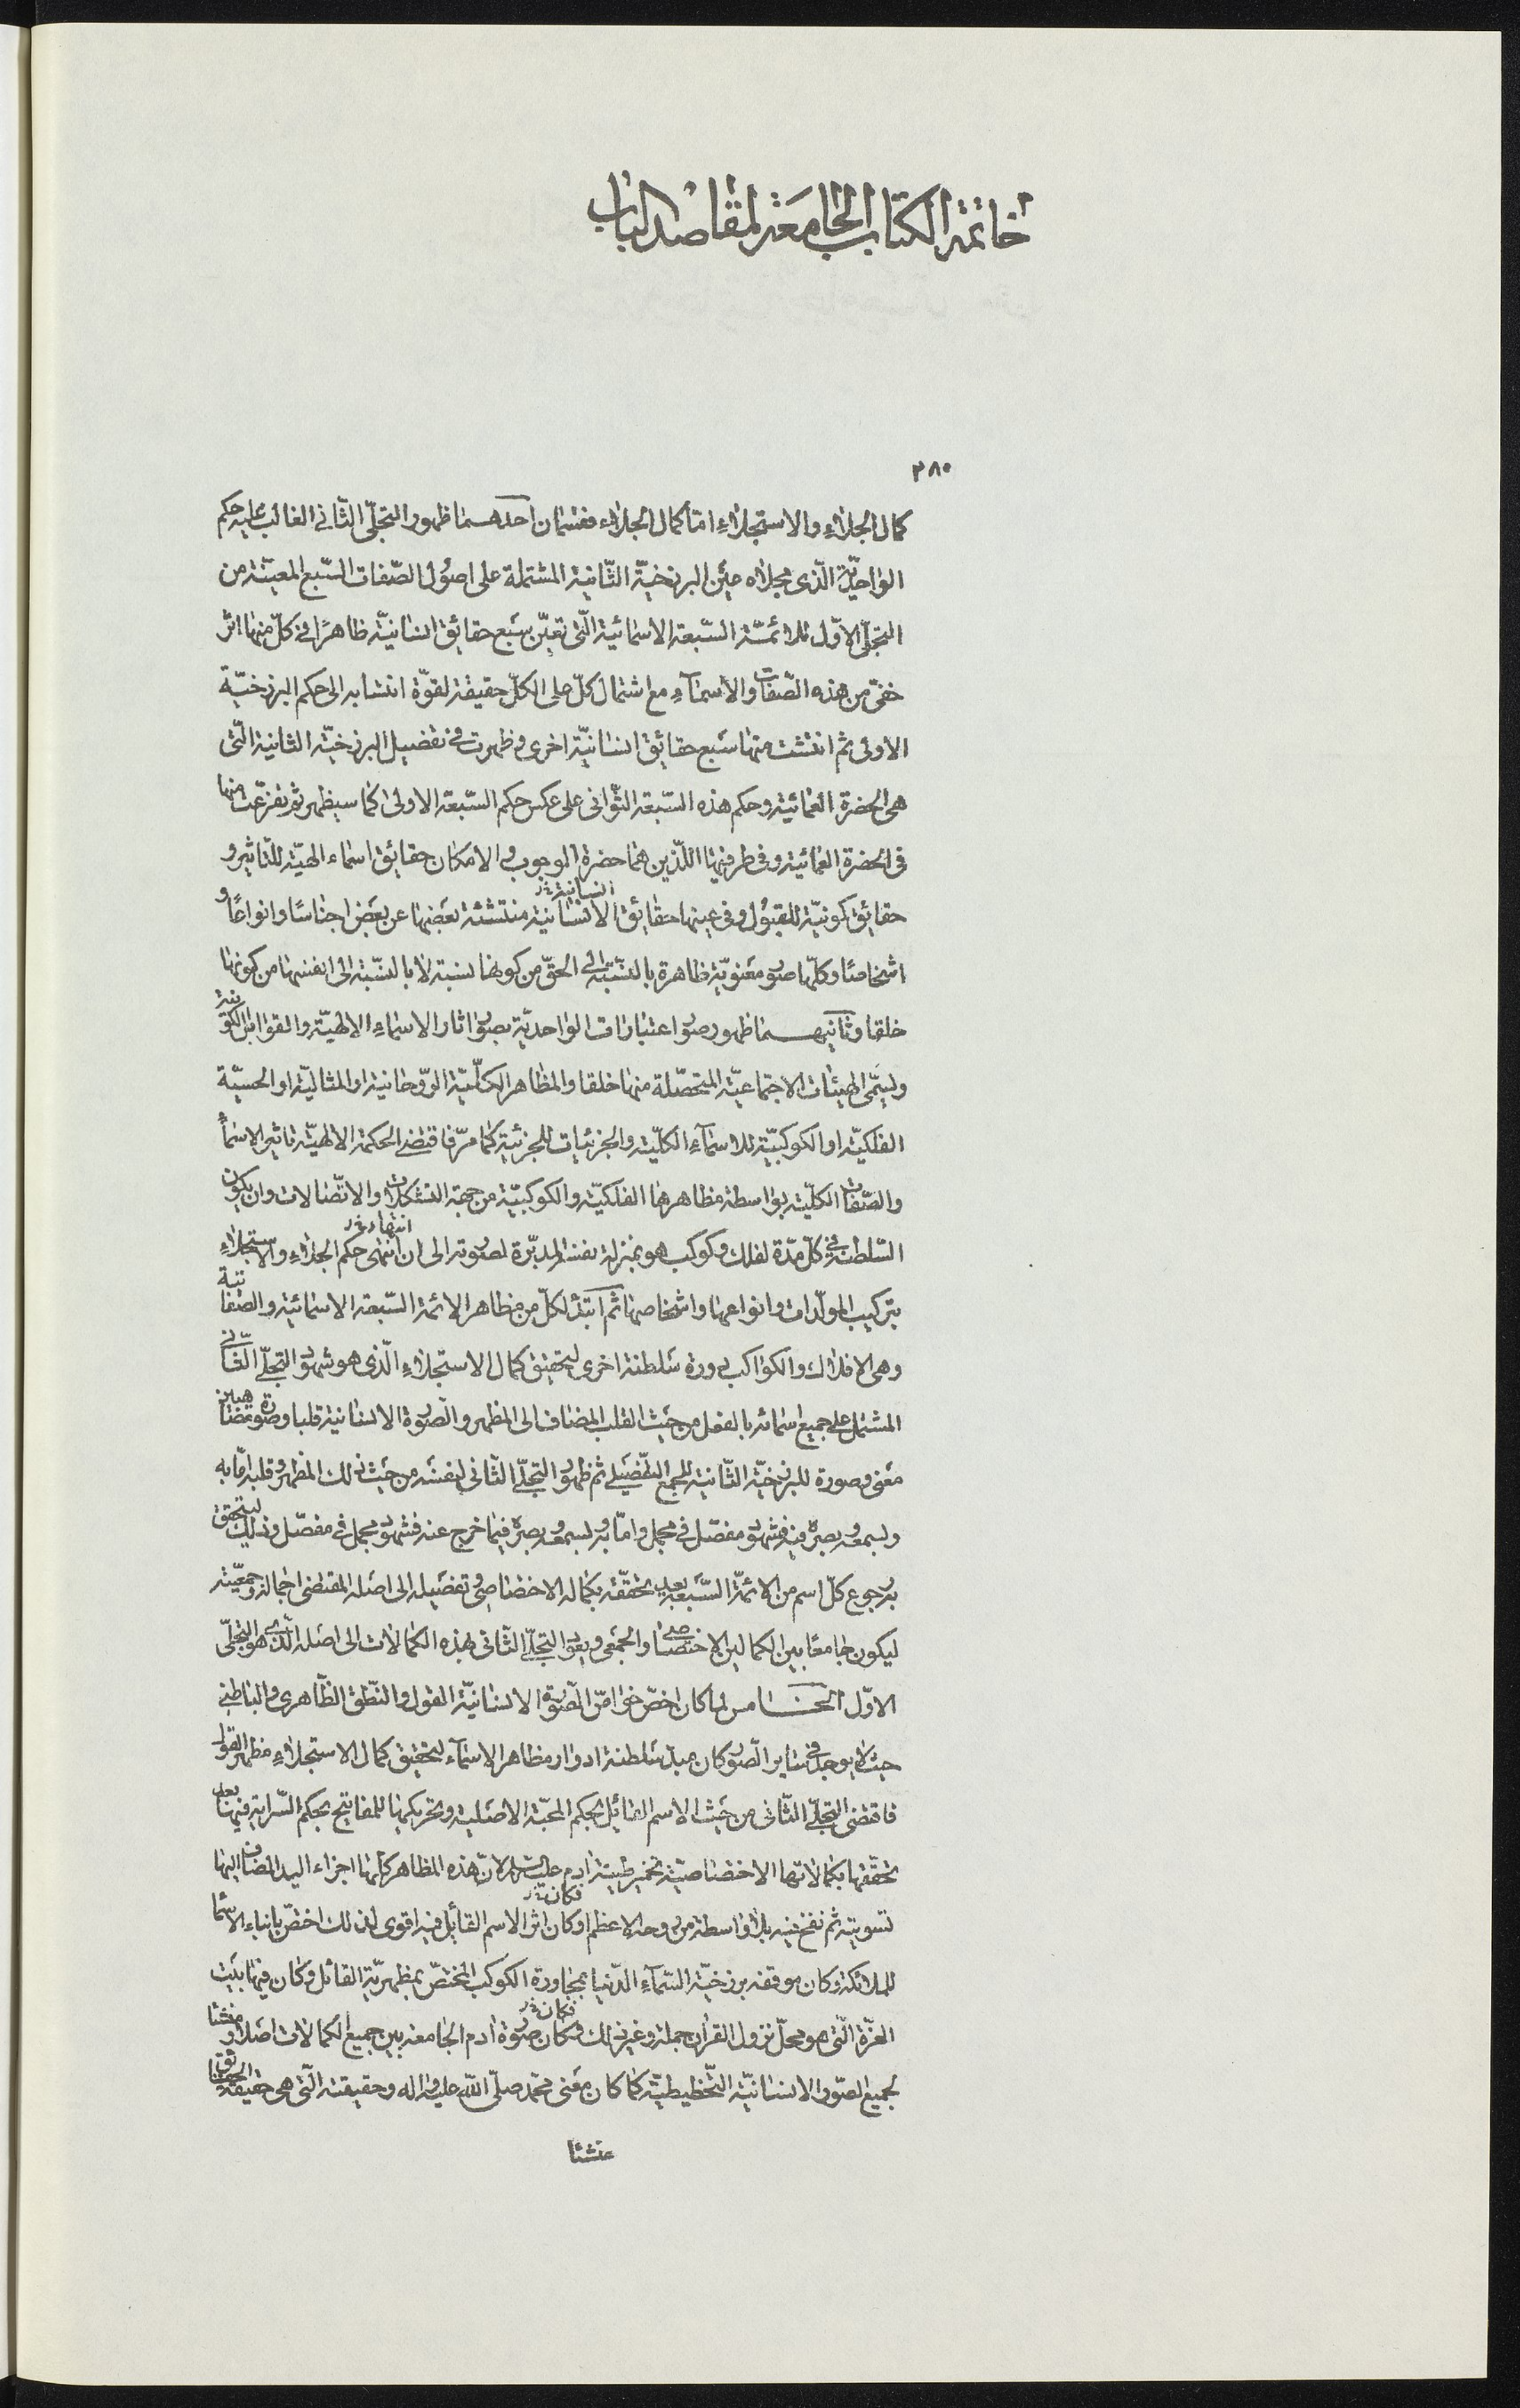 خاتمة الكتاب الجامعة لمقاصد الباب
٢٨٠
كمال الجلاء والاستجلاء امّا كمال الجلاء فقسمان احدهما ظهور التجلّى الثّانى الغالب عليه حكم
الواحديّة الّذى مجلاه عين البرزخيّة الثّانية المشتملة على اصول الصّفات السّبع المعيّنة من
التجلّى الاوّل للائمّة السّبعة الاسمائية الّتى تعيّن بسبع حقائق انسانيّة ظاهرًا فى كلّ منها اثر
خفىّ من هذه الصّفات والاسماء مع اشتمال كلّ على الكلّ حقيقة لقوّة انتسابه الى حكم البرزخيّة
الاولى ثم انتشت منها سبع حقائق انسانيّة اخرى وظهرت فى تفصيل البرزخيّة الثانية الّتى
هى الحضرة العمائية وحكم هذه السّبعة الثّوانى على عكس حكم السّبعة الاولى كما سيظهر ثم تفرّعت منها
فى الحضرة العمائية وفى طرفيها اللّذين هما حضرة الوجوب والامكان حقائق اسماء الهيّة للتّاثير و
حقائق كونيّة للقبول وفى عينها حقائق الانسانية انسانية خ‌ر منتشئة بعضها عن بعض اجناسًا وانواعًا و
اشخاصًا وكلّها صور معنويّة ظاهرة بالنّسبة الى الحقّ من كونها نسبة لا بالنّسبة الى انفسها من كونها
خلقا وثانيهما ظهور صور اعتبارات الواحديّة بصور اثار الاسماء الالهيّة والقوابل الكونية
ويسمّى الهيئات الاجتماعيّة المتحصّلة منها خلقا والمظاهر الكلّيّة الرّوحانية او المثاليّة او الحسيّة
الفلكيّة او الكوكبيّة للاسماء الكلّية والجزئيات للجزئية كما مرّ فاقتضى الحكمة الالهيّة تاثير الاسماء
والصّفات الكلّية بواسطة مظاهرها الفلكيّة والكوكبيّة من جهة التشكلات والاتّصالات وان يكون
السّلطنة فى كلّ مدّة لفلك وكوكب هو بمنزلة نفسه المدبّرة لصورته الى ان انتهى انتهاء خ‌ر حكم الجلاء والاستجلاء
بتركيب المولّدات وانواعها واشخاصها ثم ابتدأ لكلّ من مظاهر الائمة السّبعة الاسمائية والصّفاتية
وهى الافلاك والكواكب دورة سلطنة اخرى لتحقيق كمال الاستجلاء الّذى هو شهود التجلّى الثّانى
المشتمل على جميع اسمائه بالفعل من حيث القلب المضاف الى المظهر والصّورة الانسانية قلبا وصورة مضاهيين
معنى وصورة للبرزخيّة الثّانية للجمع التّفصيلى ثم ظهور التجلّى الثّانى لنفسه من حيث ذلك المظهر وقلبه امّا به
وبسمعه وبصره فيه فشهود مفصّل فى مجمل وامّا به وبسمعه وبصره فيما خرج عنه فشهود مجمل فى مفصّل وذلك ليتحقق
برجوع كلّ اسم من الائمّة السّبعة بعد تحقّقه بكماله الاختصاصى وتفصيله الى اصله المقتضى اجماله وجمعيّته
ليكون جامعًا بين الكمالين الاختصاصى والجمعى ويعود التجلّى الثّانى بهذه الكمالات الى اصله الّذى هو التجلّى
الاوّل الخامس لما كان اخصّ خواصّ الصّورة الانسانيّة القول والنّطق الظّاهرى والباطنى
حيث لا يوجد فى ساير الصّور كان مبدأ سلطنة ادوار مظاهر الاسماء لتحقيق كمال الاستجلاء مظهر القول
فاقتضى التجلّى الثّانى من حيث الاسم القائل بحكم المحبّة الاصلية وتحريكها للمفاتيح بحكم السّراية فيها بعد
تحقّقها بكمالاتها الاختصاصيّة تخمير طينة ادم عليه السلام لانّ هذه المظاهر كلّها اجزاء اليد المضاف اليها
تسويته ثم نفخ فيه بلا واسطة من روحه الاعظم او كان فكان خ‌ر اثر الاسم القائل فيه اقوى لذلك اختصّ بانباء الاسماء
للملائكة وكان موقفه برزخيّة السّماء الدّنيا بمجاورة الكوكب المختصّ بمظهريّة القائل وكان فيها بيت
العزّة الّتى هو محلّ نزول القرآن جملة وغير ذلك وكان فكان خ‌ر صورة ادم الجامعة بين جميع الكمالات اصلا ومنشئا
لجميع الصّور الانسانيّة التّخطيطيّة كما كان معنى محمّد صلّى الله عليه واله وحقيقته الّتى هى حقيقة الحقائق
منشئا